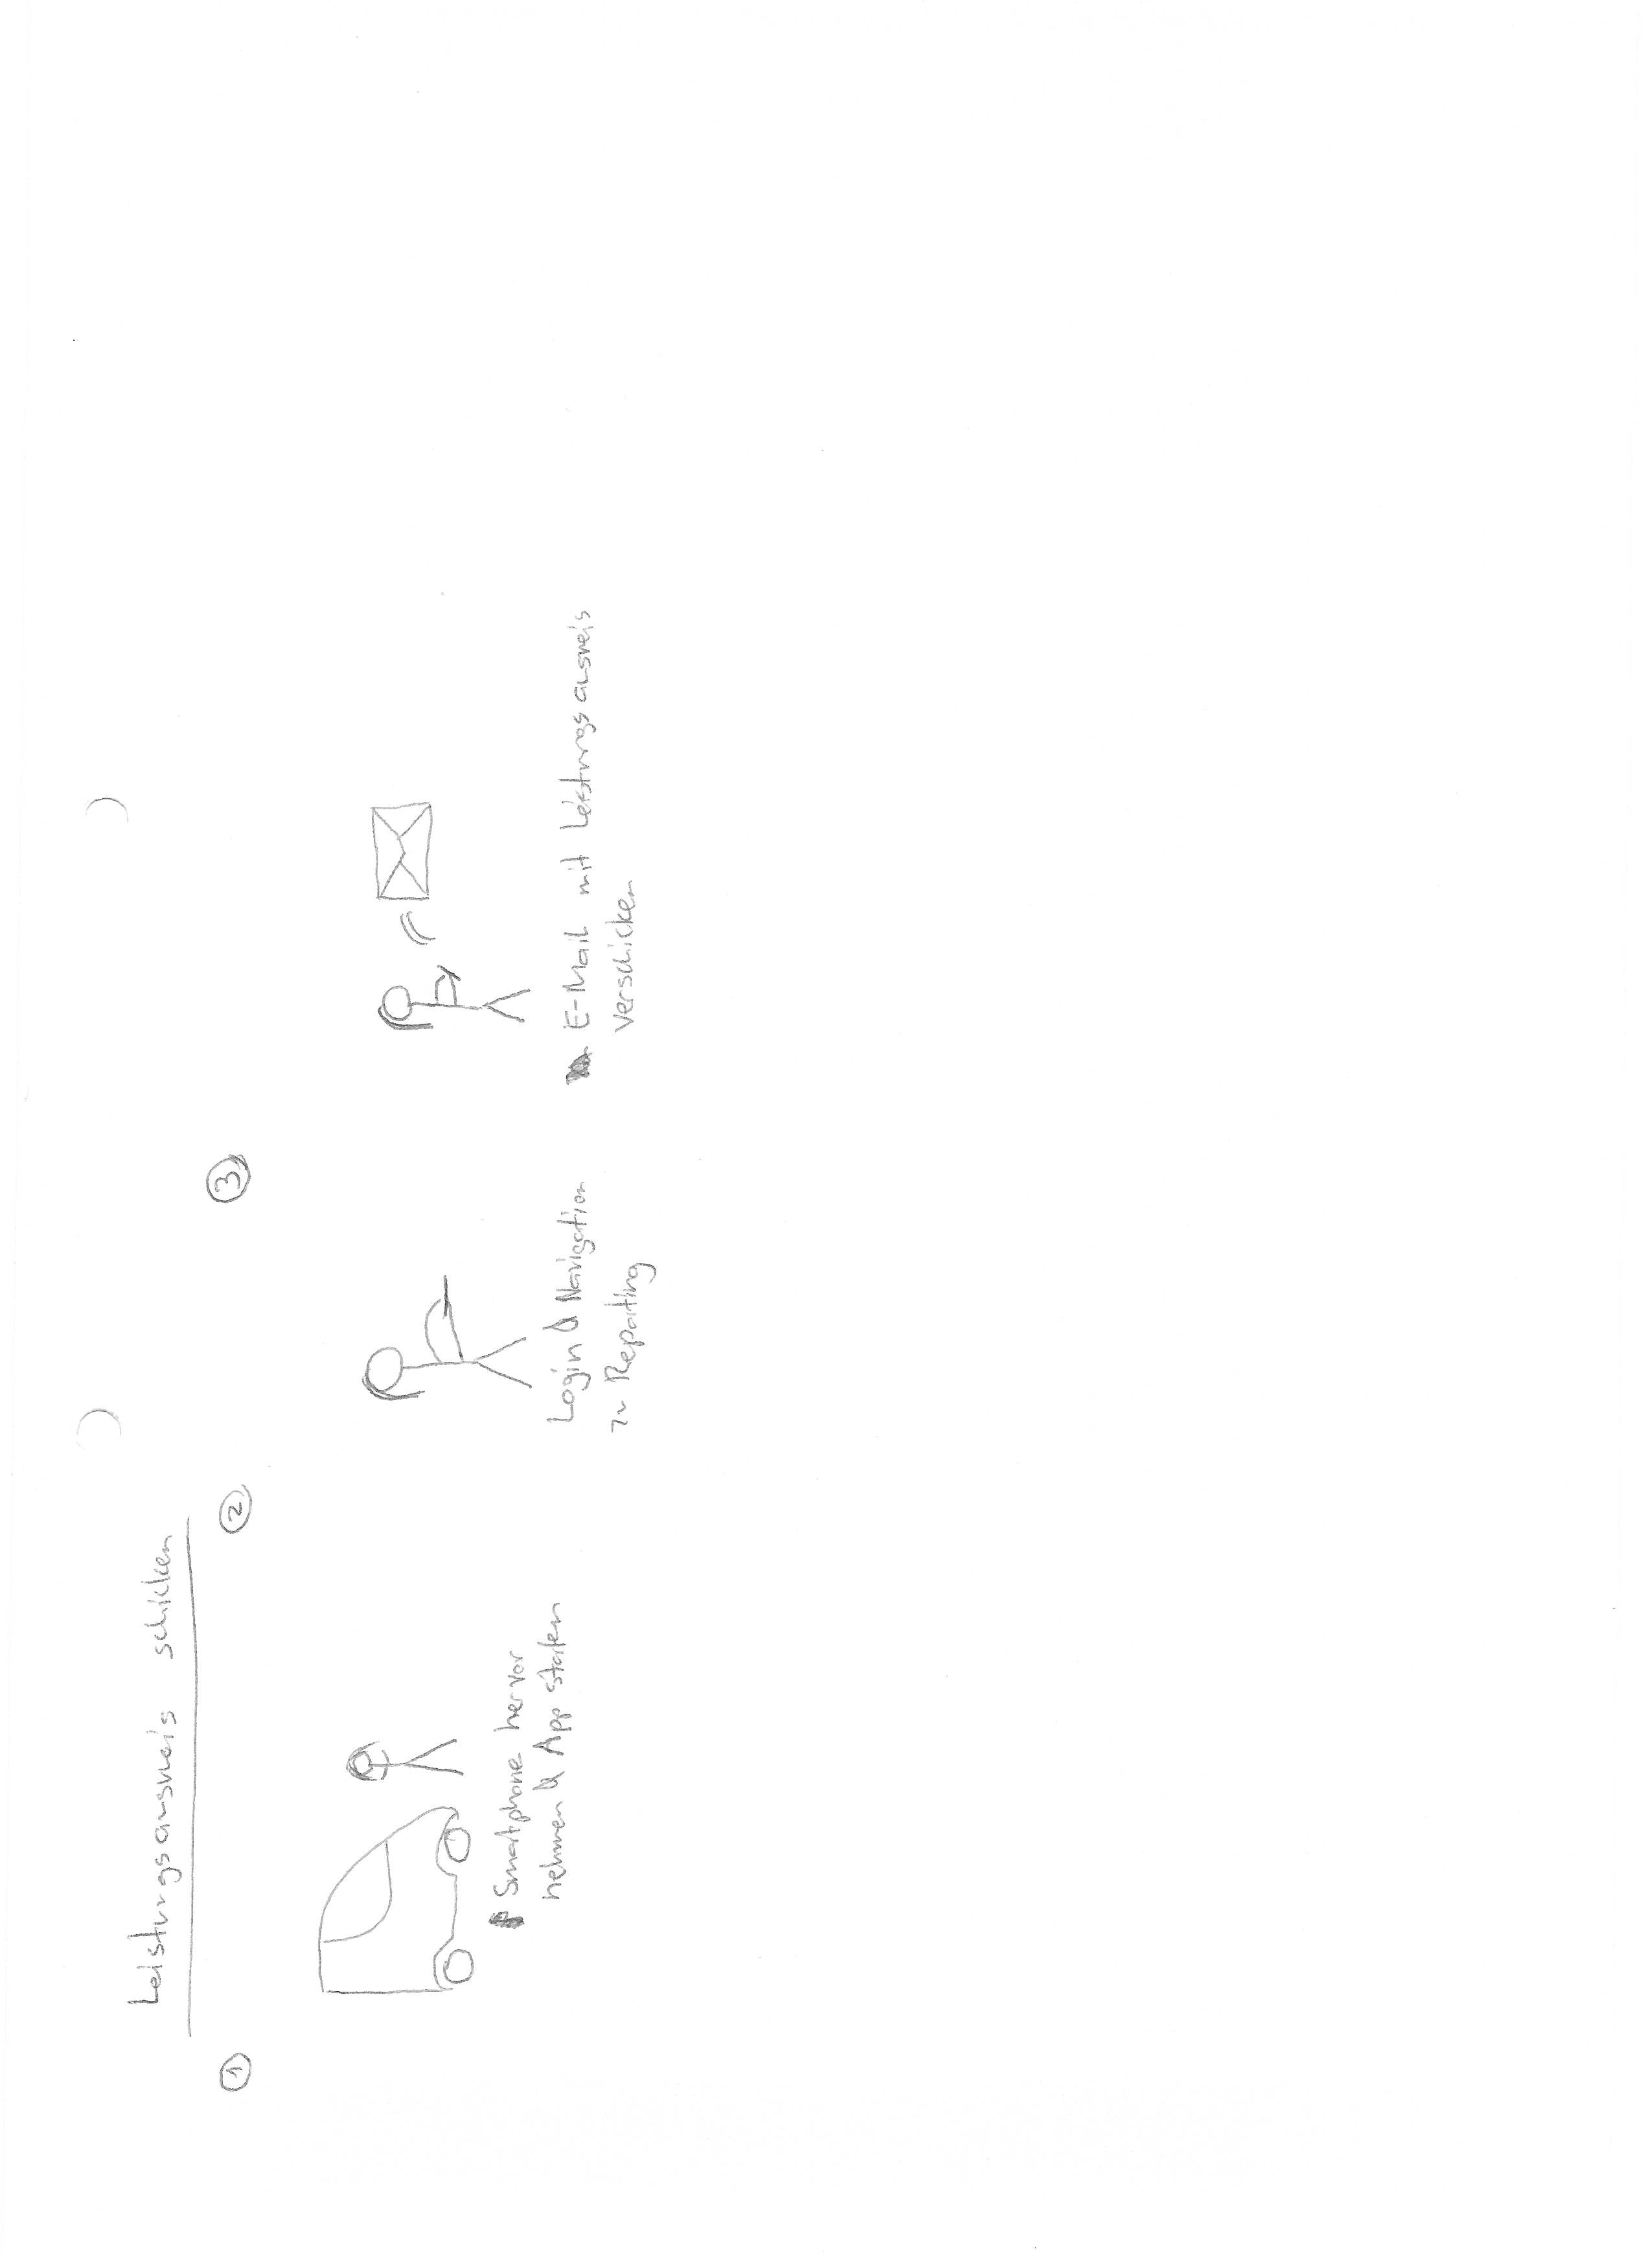 Leistungsausweis schicken
①
Smartphone hervor
nehmen & App starten
②
Login & Navigation
zu Reporting
③
E-Mail mit Leistungsausweis
verschicken